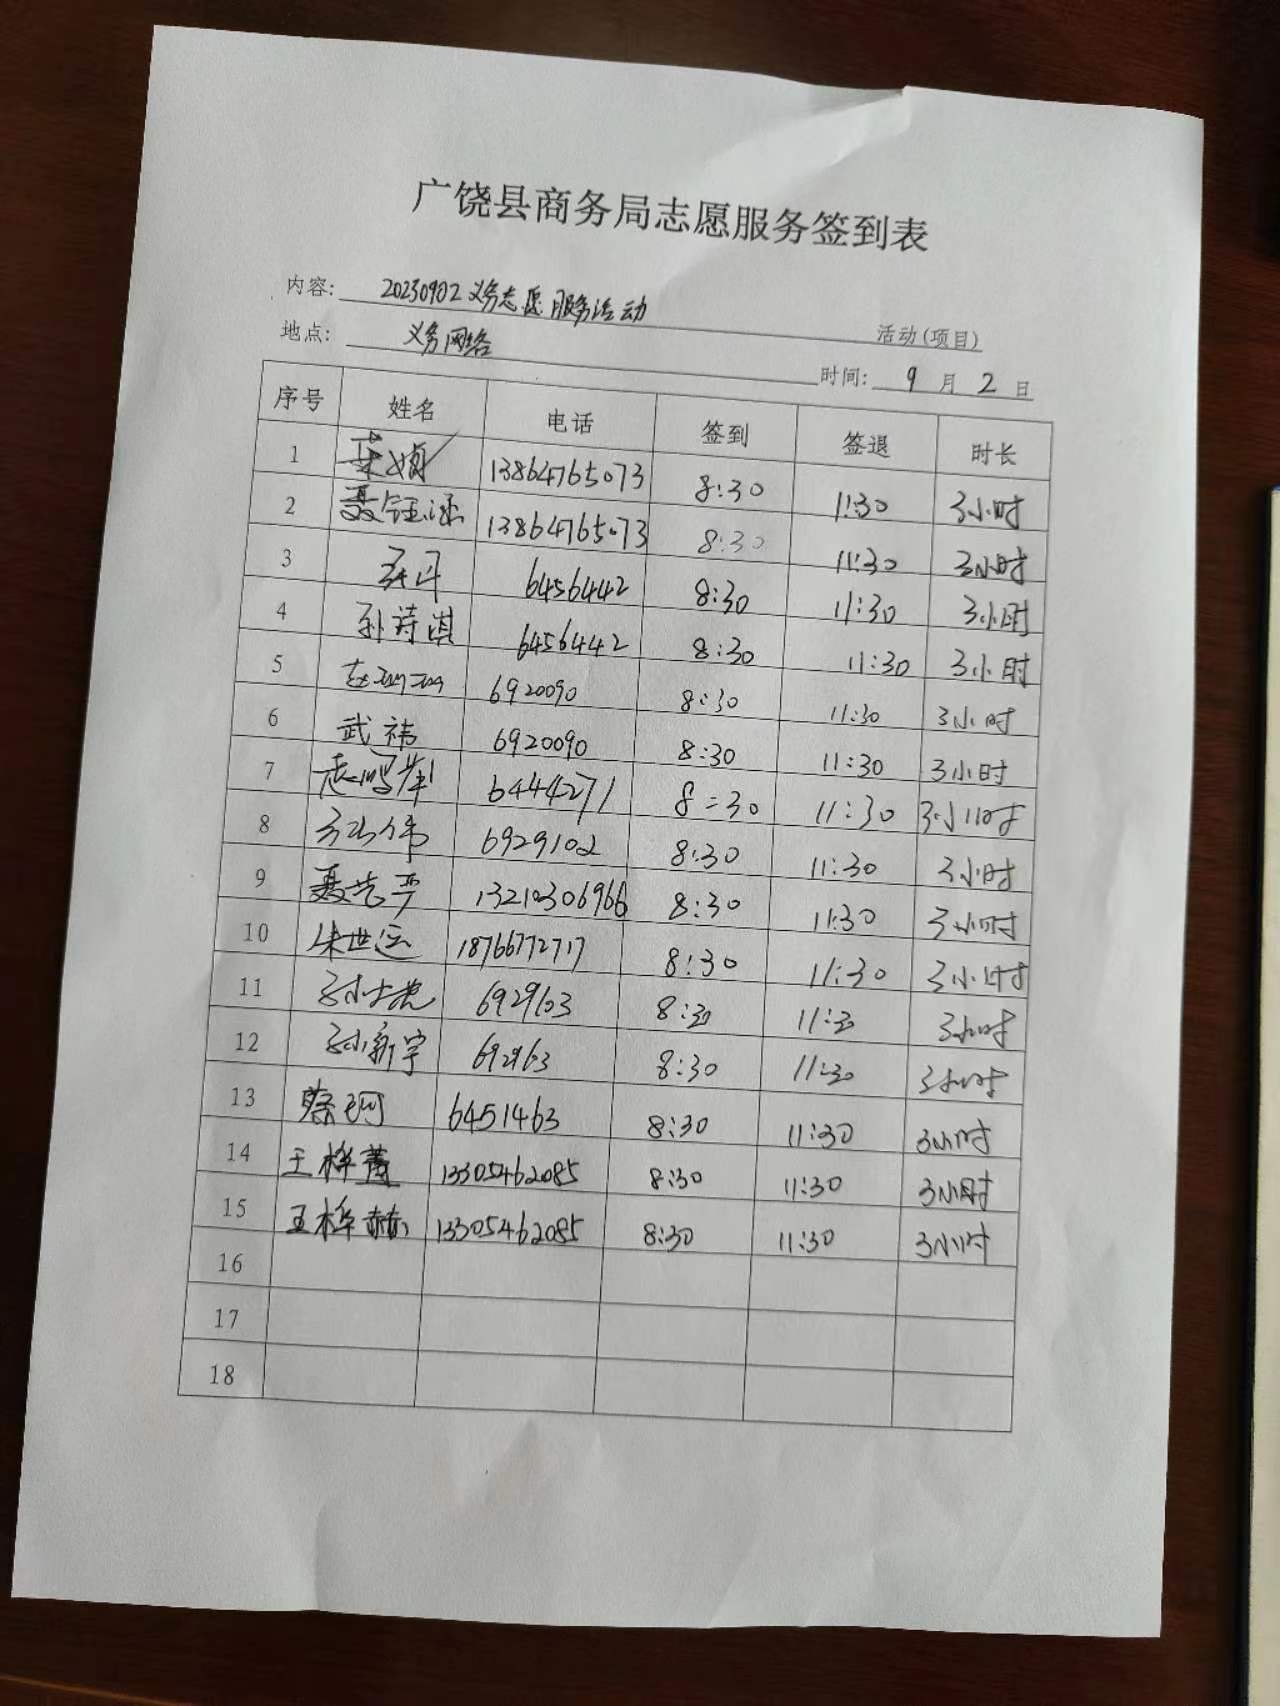 广饶县商务局志愿服务签到表
内容: 20230902义务志愿服务活动 活动(项目)
地点: 义务网络 时间: 9 月 2 日
序号 姓名 电话 签到 签退 时长
1 13864765073 8:30 11:30 3小时
2 聂钰涵 13864765073 8:30 11:30 3小时
3 6456442 8:30 11:30 3小时
4 孙诗淇 6456442 8:30 11:30 3小时
5 6920090 8:30 11:30 3小时
6 武祎 6920090 8:30 11:30 3小时
7 6444271 8:30 11:30 3小时
8 6929102 8:30 11:30 3小时
9 13210306966 8:30 11:30 3小时
10 朱世运 18766772717 8:30 11:30 3小时
11 6929103 8:30 11:30 3小时
12 孙新宇 692963 8:30 11:30 3小时
13 6451463 8:30 11:30 3小时
14 王桦菁 13305462085 8:30 11:30 3小时
15 王桦赫 13305462085 8:30 11:30 3小时
16
17
18